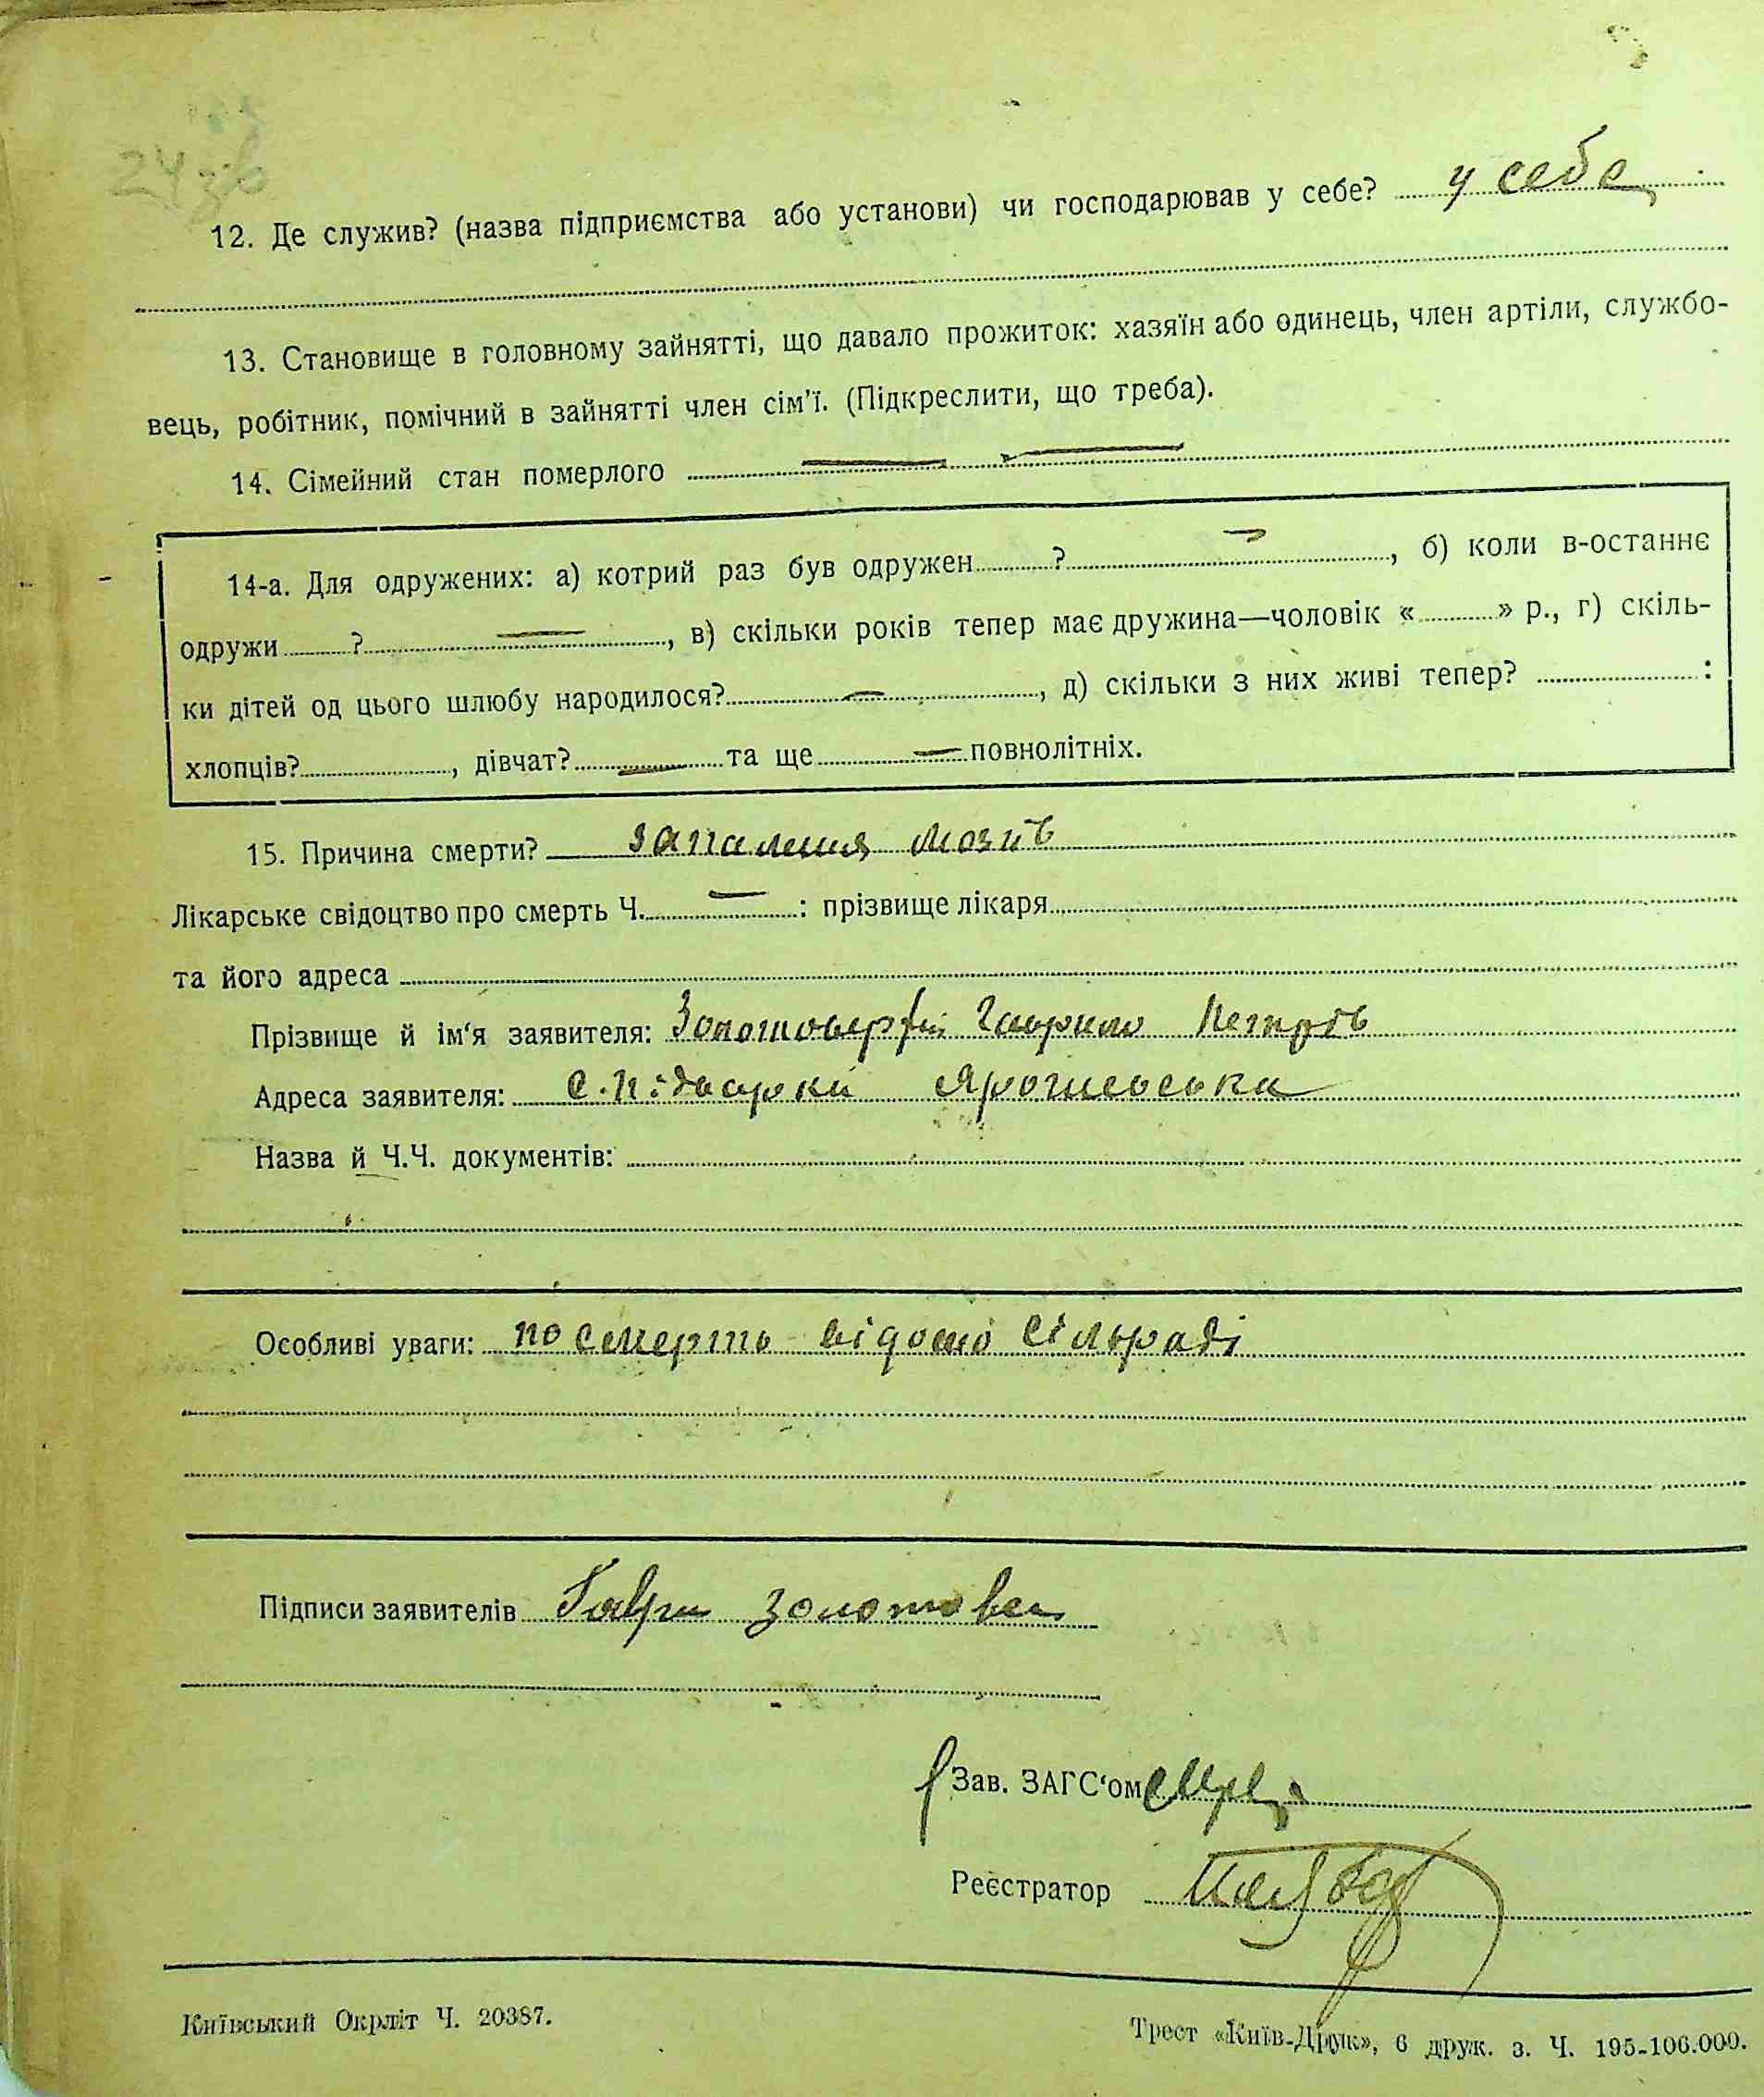 24 зв
12. Де служив? (назва підприємства або установи) чи господарював у себе? у себе
13. Становище в головному зайнятті, що давало прожиток: хазяїн або одинець, член артіли, службо-
вець, робітник, помічний в зайнятті член сім'ї. (Підкреслити, що треба).
14. Сімейний стан померлого
14-а. Для одружених: а) котрий раз був одружен ? , б) коли в-останнє
одружи ? , в) скільки років тепер має дружина—чоловік « » р., г) скіль-
ки дітей од цього шлюбу народилося? , д) скільки з них живі тепер? :
хлопців? , дівчат? та ще повнолітніх.
15. Причина смерти? запалення мозків
Лікарське свідоцтво про смерть Ч. : прізвище лікаря
та його адреса
Прізвище й ім'я заявителя: Золотоверхий Гаврило Петров
Адреса заявителя: С. Підварки Ярошевська
Назва й Ч.Ч. документів:
Особливі уваги: по смерть відомо сільраді
Підписи заявителів Гаври Золотове
Зав. ЗАГС'ом
Реєстратор
Київський Окрліт Ч. 20387.
Трест «Київ-Друк», 6 друк. з. Ч. 195-106.000.